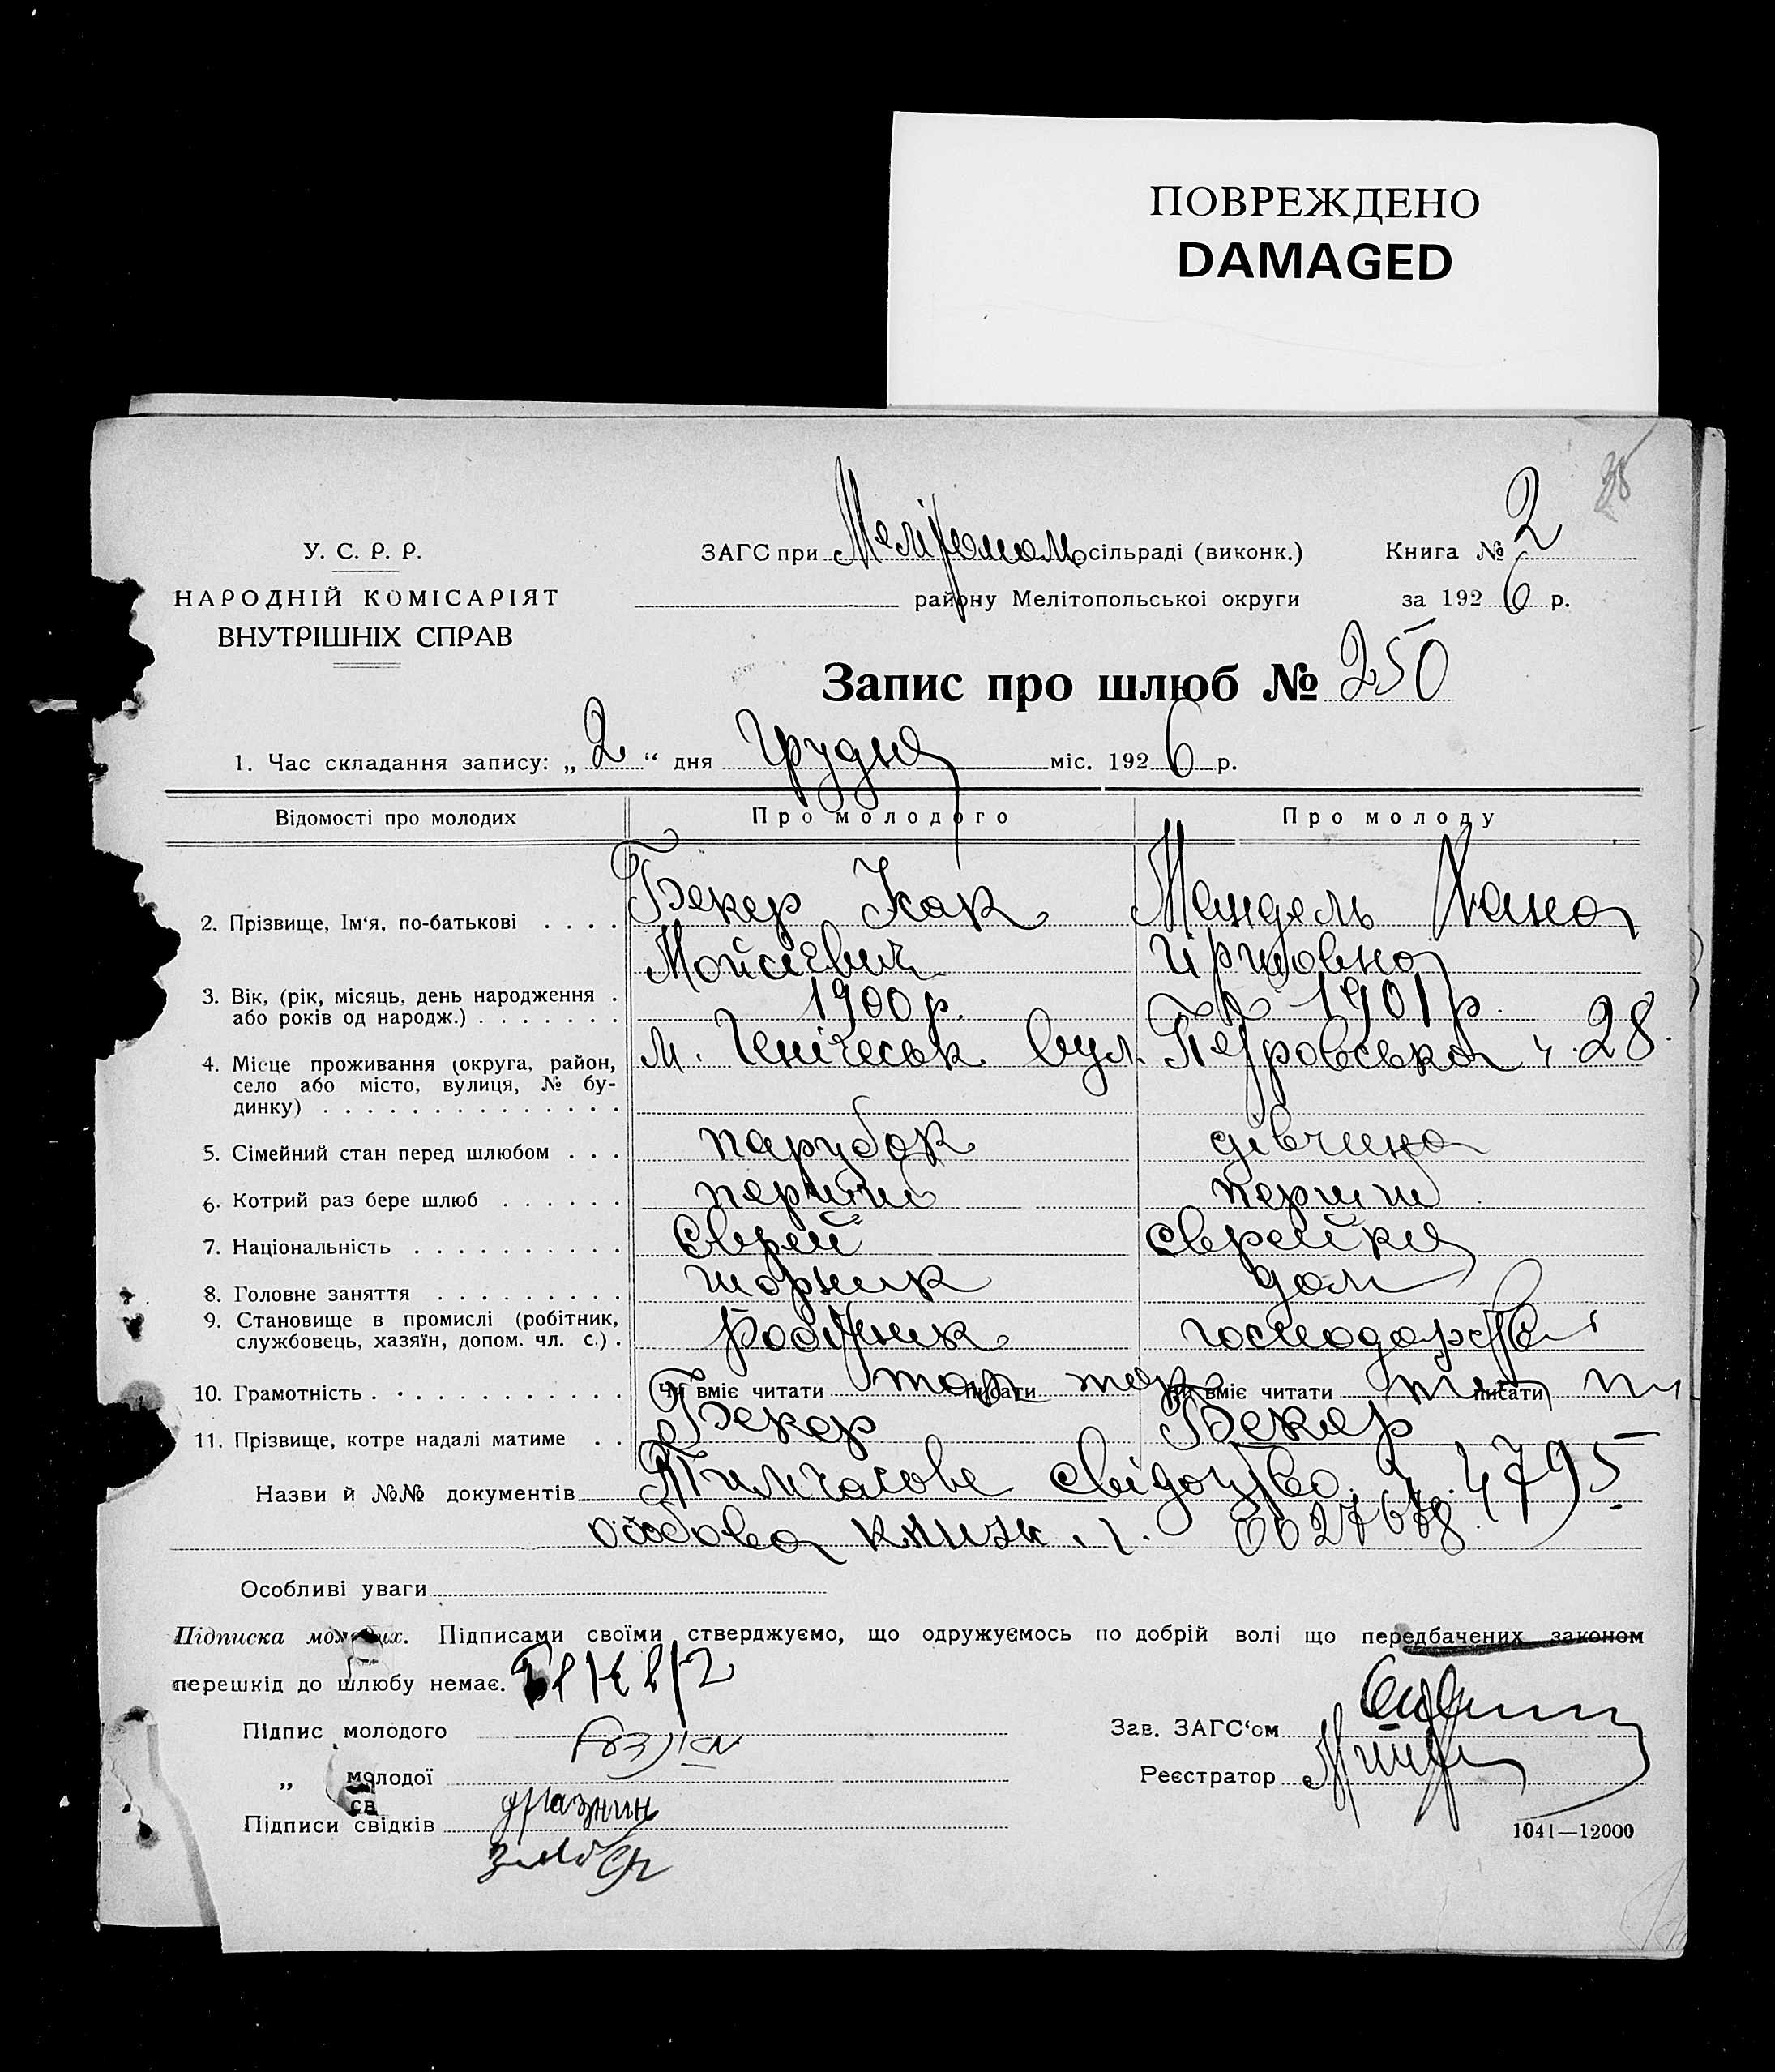 ПОВРЕЖДЕНО
DAMAGED
У. С. Р. Р.
НАРОДНІЙ КОМІСАРІЯТ
ВНУТРІШНІХ СПРАВ
ЗАГС при Мелітопол сільраді (виконк.) Книга № 2
району Мелітопольської округи за 1926 р.
Запис про шлюб № 250
1. Час складання запису: „2“ дня грудня міс. 1926 р.
Відомості про молодих Про молодого Про молоду
2. Прізвище, Ім'я, по-батькові . . . . Бекер Ісак Мандель Хана
Мойсієвич Гіршовна
3. Вік, (рік, місяць, день народження . 1900 р. 1901 р.
або років од народж.) . . . . . . .
4. Місце проживання (округа, район, м. Генічеськ вул. Петровська ч. 28.
село або місто, вулиця, № бу-
динку) . . . . . . . . . . . . . .
5. Сімейний стан перед шлюбом . . . парубок дівчина
6. Котрий раз бере шлюб . . . . . . перший перший
7. Національність . . . . . . . . . . Єврей єврейка
8. Головне заняття . . . . . . . . . шорник дом
9. Становище в промислі (робітник,
службовець, хазяїн, допом. чл. с.) . Робітник господарстві
10. Грамотність . . . . . . . . . . . . Чи вміє читати так писати так Чи вміє читати писати
11. Прізвище, котре надалі матиме . . Бекер Бекер
Назви й №№ документів Тимчасове свідоцтво ч. 4795
особова книжк. ч. 0027678
Особливі уваги
Підписка молодих. Підписами своїми стверджуємо, що одружуємось по добрій волі що передбачених законом
перешкід до шлюбу немає.
Підпис молодого Зав. ЗАГС'ом
„ молодої Реєстратор
св
Підписи свідків
1041—12000